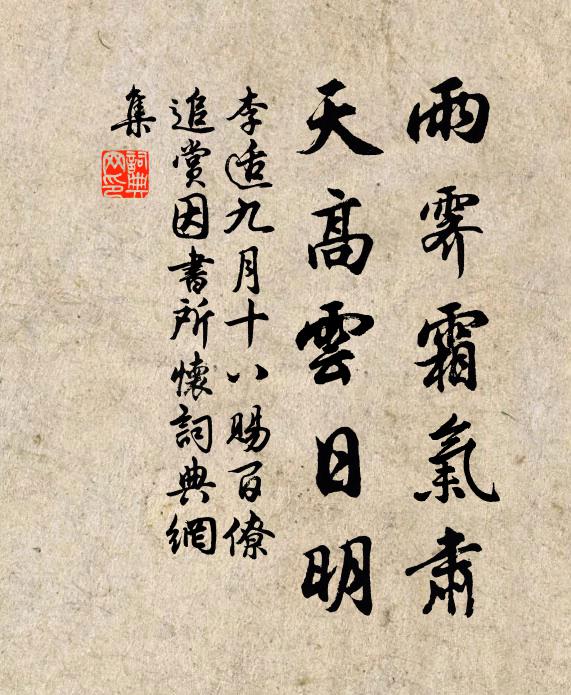 雨霽霜氣肅
天高雲日明
李适九月十八賜百僚
追賞因書所懷詞典網
集
詞典网印